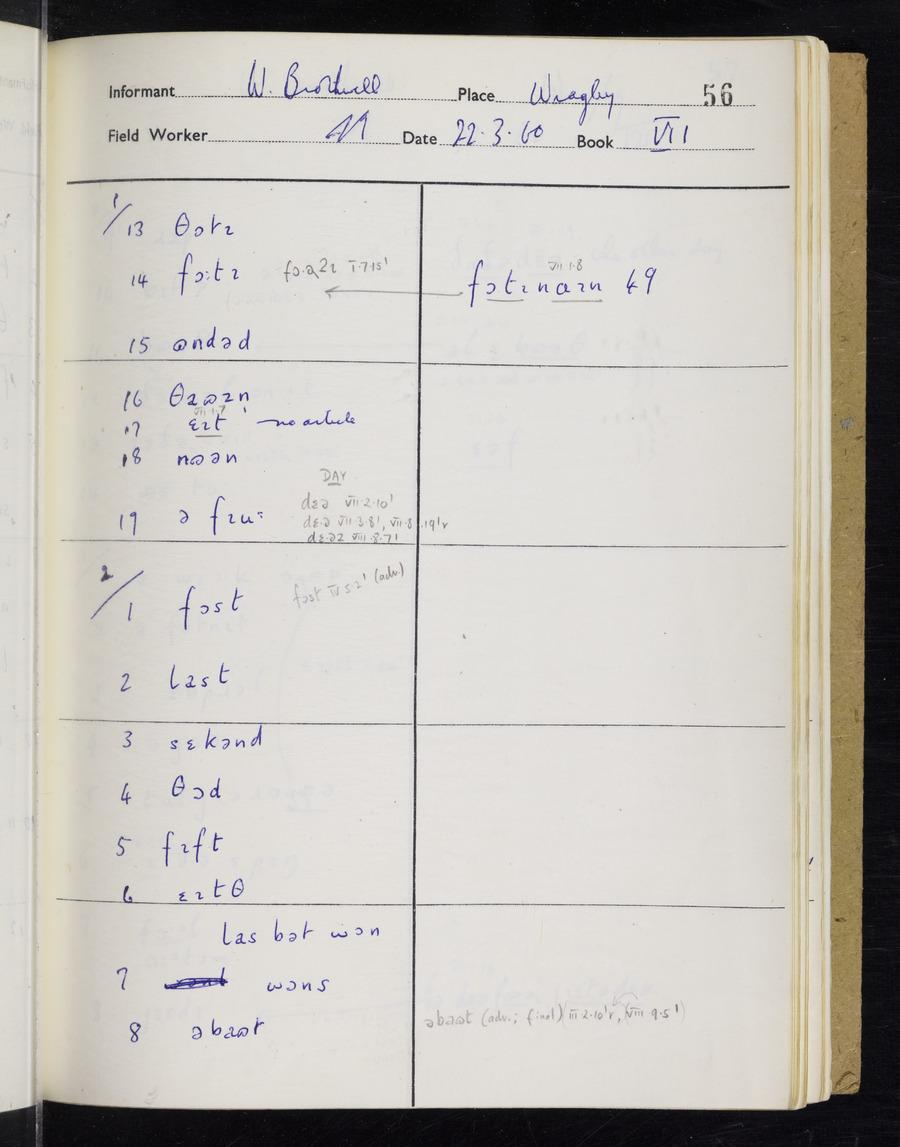 Informant W. Brothwell Place Wragby 56
Field Worker Date 22.3.60 Book VII
1/13 θɔtɪ
14 fɔːtɪ
fɔtɪnaɪn 49
VII 1.8
15 ʊndəd
16 θaʊzn
VII 1.7
17 ɛɪt no article
18 nʊən
DAY
dɛə VII·2·10'
19 ə fɪu
dɛ·ə VII·3·8', VII·8.19'r
dɛ·əz VIII·8·7'
2/1 fɔst
fɔst IV 5·2' (adv.)
2 last
3 sɛkənd
4 θɔd
5 fɪft
6 ɛɪtθ
las bət wɔn
7 wɔns
8 əbaʊt
əbaʊt (adv.; final) III 2·10'r, (VIII 9·5')